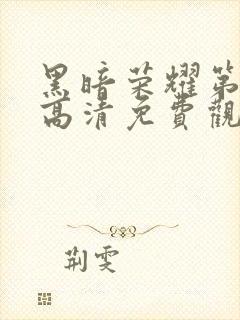 黑暗荣耀第
高清免費觀
荆雯